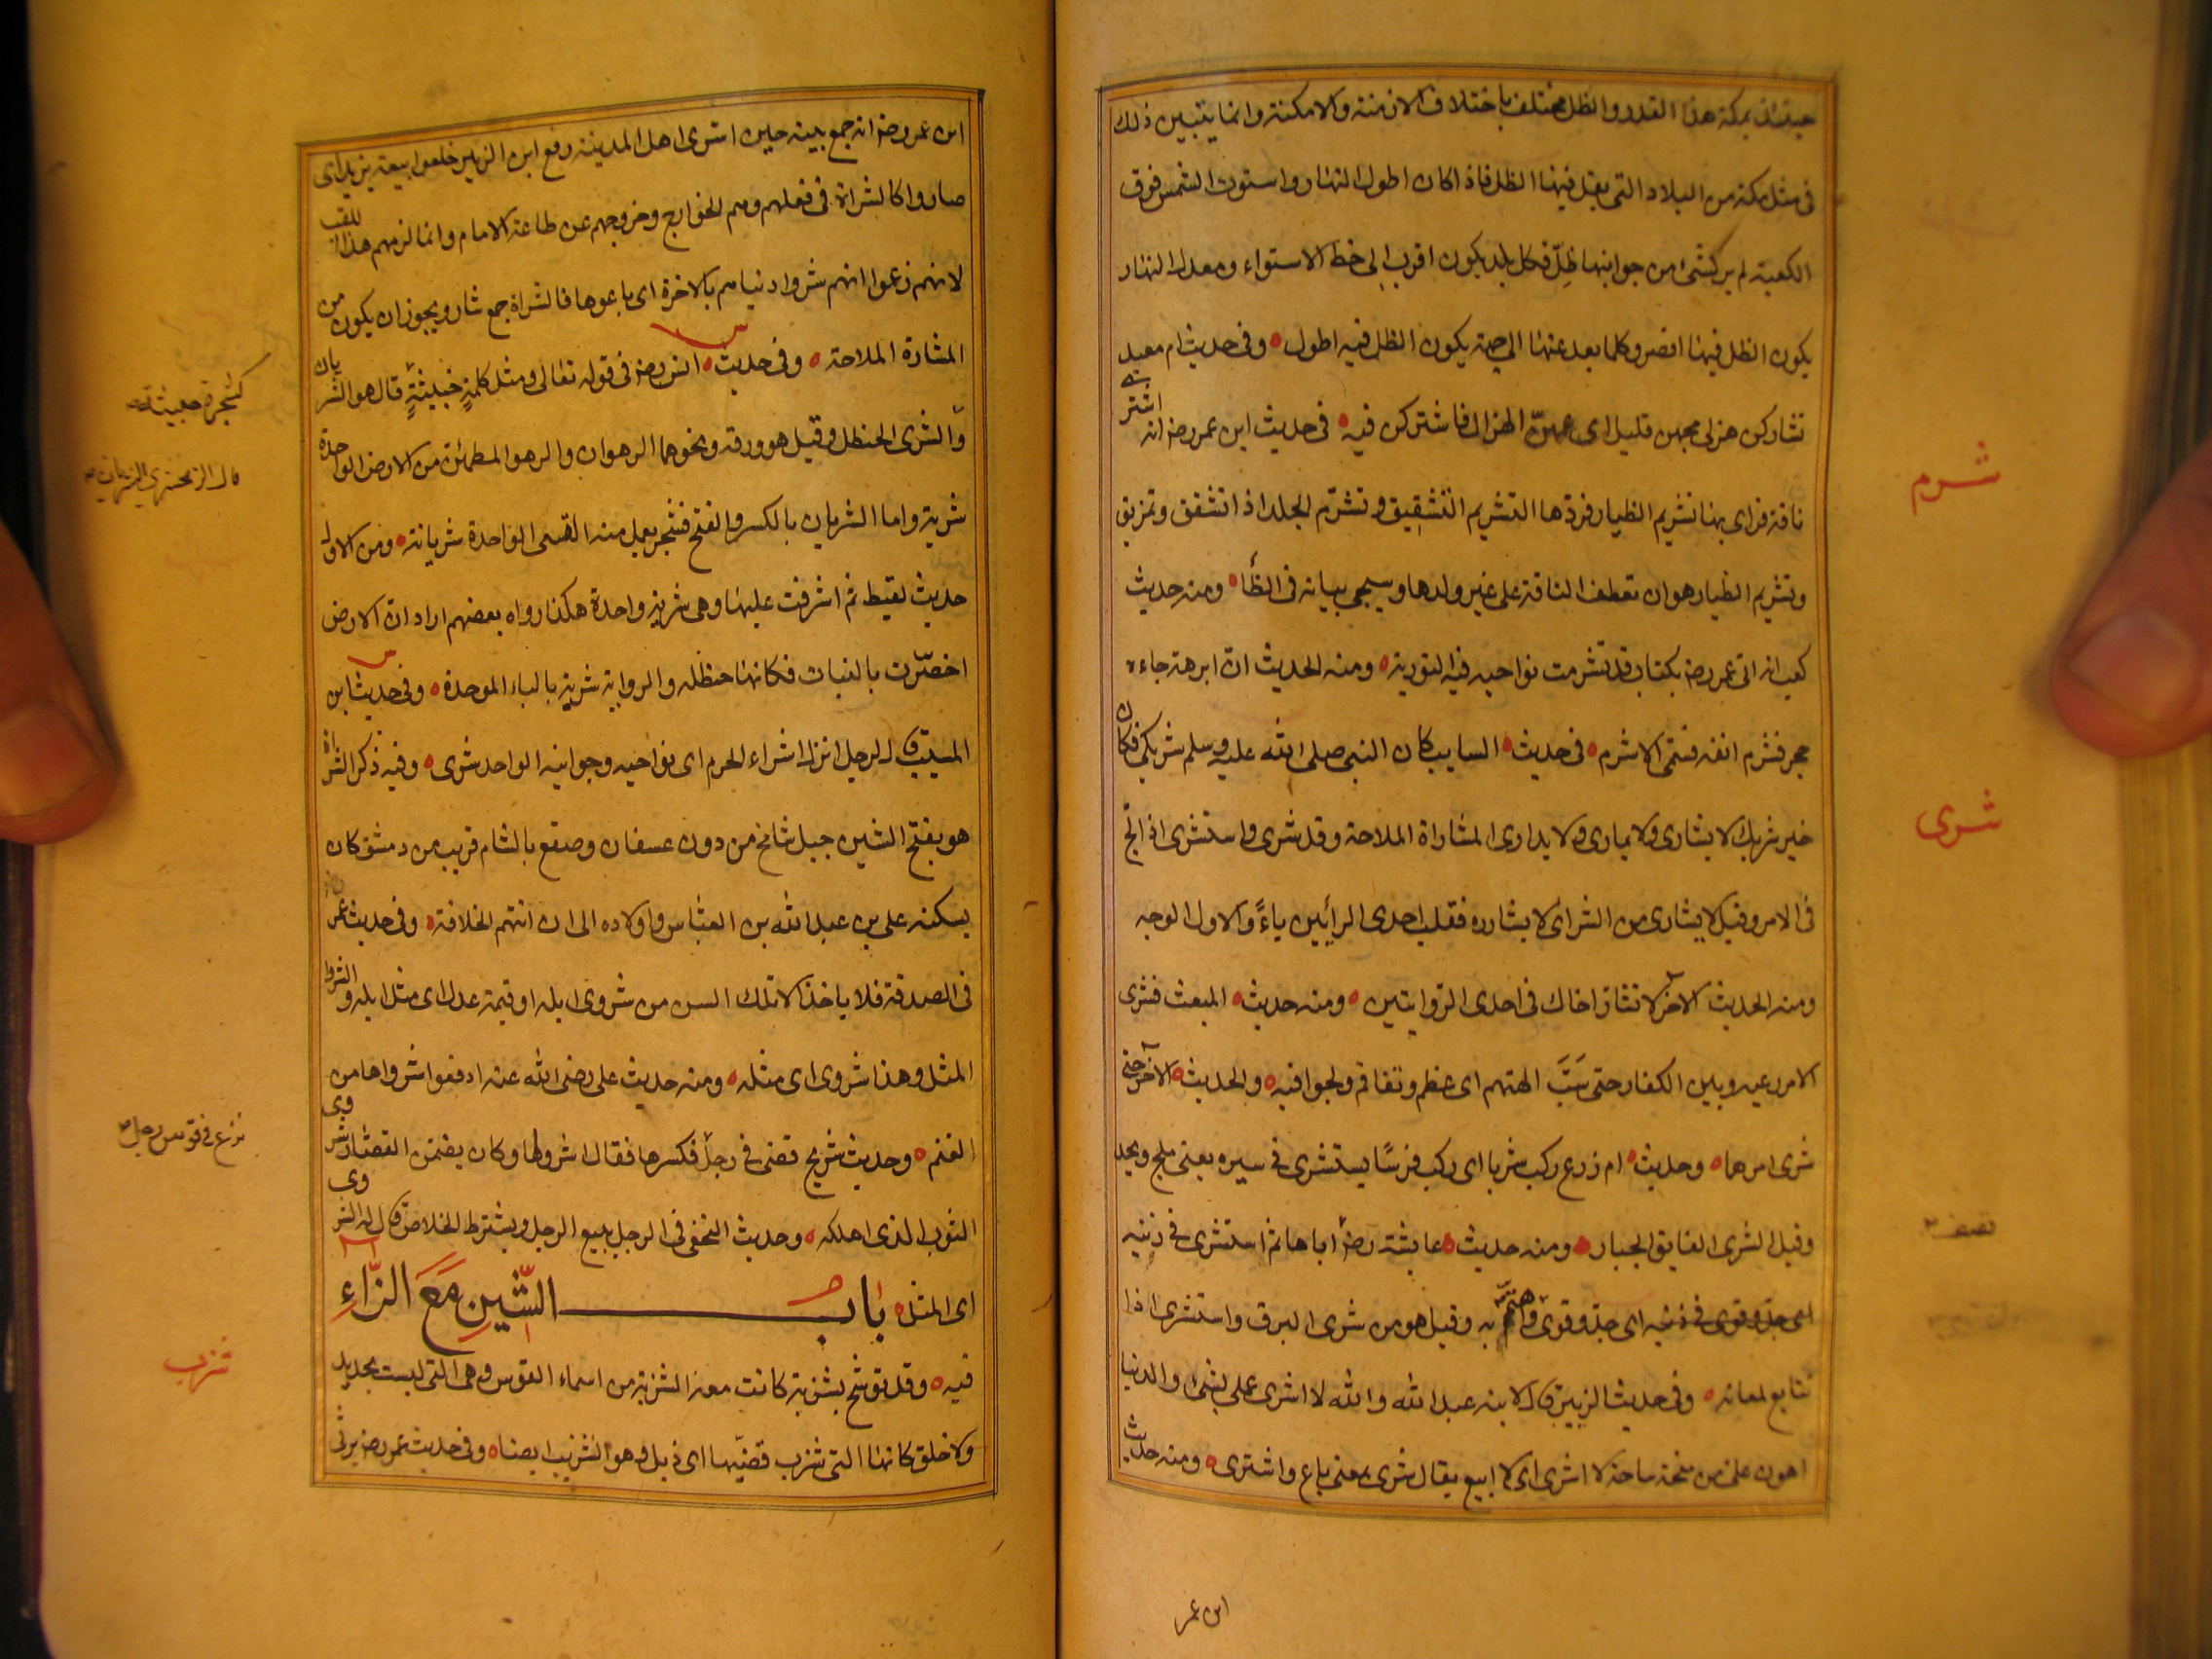 حينئذ بمكة هذا القدر والظل مختلف باختلاف الازمنة والامكنة وانما يتبين ذلك
فى مثل مكة من البلاد التى يقل فيها الظل فاذا كان اطول النهار واستوت الشمس فوق
الكعبة لم ير كشئ من جوانبها ظلّ فكل بلد يكون اقرب الى خط الاستواء ومعدل النهار
يكون الظل فيها اقصر وكلما بعد عنها الى جهة يكون الظل فيه اطول وفى حديث ام معبد
تشاركن هزلى مخهن قليل اى عمهنّ الهزال فاشتركن فيه فى حديث ابن عمر رضه انه اشترى
ناقة فراى بها تشريم الظيار فردّها التشريم التشقيق وتشرّم الجلد اذا تشقق وتمزيق
وتشريم الظيار هو ان تعطف الناقة على غير ولدها وسيجى بيانه فى الظأ ومنه حديث
كعب انه اتى عمر رضه بكتاب قد تشرمت نواحيه فيه التورية ومنه الحديث انّ ابرهة جاءه
حجر فشرم انفه فسمّى الاشرم فى حديث السايب كان النبى صلى الله عليه وسلم شريكى فكان
خير شريك لا يشارى ولا يمارى ولا يدارى المشاراة الملاحة وقد شرى واستشرى اذا لجّ
فى الامر وقيل لا يشارى من الشر اى لا يشارره فقلب احدى الرائين ياءً والاول الوجه
ومنه الحديث الاخر لا تشار اخاك فى احدى الروايتين ومنه حديث المبعث فشرى
الامر بينه وبين الكفار حتى سَبَّ الهتهم اى عظم وتفاقم ولجوا فيه والحديث الاخر حتى
شرى امرهما وحديث ام زرع ركب شريا اى ركب فرسًا يستشرى فى سيره يعنى يلج ويجد
وقيل الشرى الفايق الخيار ومنه حديث عايشة رضه اباها ثم استشرى فى دينه
اى جدّ وقوى فى دينه اى جدّ وقوى واهتم به وقيل هو من شرى البرق واستشرى اذا
تتابع لمعانه وفى حديث الزبير قال لابنه عبد الله والله لا اشرى عملى بشئ والدنيا
اهون علىّ من منحة ساحة لا اشرى اى لا ابيع يقال شرى بمعنى باع واشترى ومنه حديث
ابن عمر
شرم
شرى
تصف
ابن عمر رضه انه جمع بنيه حين اشرى اهل المدينة مع ابن الزبير خلعوا بيعة يزيد اى
صاروا كالشراة فى فعلهم وهم الخوارج وخروجهم عن طاعة الامام وانما لزمهم هذا اللقب
لانهم زعموا انهم شروا دنياهم بالاخرة اى باعوها فالشراة جمع شار ويجوز ان يكون من
المشارة الملاحة وفى حديث انس رضه فى قوله تعالى ومثل كلمةٍ خبيثةٍ قال هو الشريان
والشرى الحنظل وقيل هو ورقه ونحوهما الرهوان والرهو المطمئن من الارض الواحدة
شرية واما الشريان بالكسر والفتح فشجر يعمل منه القسى الواحدة شريانة ومن الاول
حديث لقيط ثم اشرفت عليها وهى شرية واحدة هكذا رواه بعضهم اراد انّ الارض
اخضرّت بالنبات فكانها حنظلة والرواية شربة بالباء الموحدة وفى حديث ابن
المسيب قال لرجل انزل اشراء الحرم اى نواحيه وجوانبه الواحد شرى وفيه ذكر الشراة
هو بفتح الشين جبل شامخ من دون عسفان وصقع بالشام قريب من دمشق كان
يسكنه على بن عبد الله بن العباس واولاده الى ان اتتهم الخلافة وفى حديث عمر
فى الصدقة فلا ياخذ الا تلك السن من شروى ابله او قيمة عدل اى مثل ابله والشروا
المثل وهذا شروى اى مثله ومنه حديث على رضى الله عنه ادفعوا شرواها من
الغنم وحديث شريح قضى فى رجل فكسرها فقال له شرواها وكان يضمن القصّار شروى
الثوب الذى اهلكه وحديث النخفى فى الرجل يبيع الرجل ويشترط الخلاص قال له الشروى
اى المثل باب الشّين مَعَ الزّاءِ
فيه وقد توشح بشزبة كانت معه الشزبة من اسماء القوس وهى التى ليست بجديد
ولا خلق كانها التى شزب قضيبها اى ذبل وهو الشزيب ايضا وفى حديث عمر رضه يرثى
كشجرة خبيثة
قال الزمخشرى الشريان
نزع فى قوس رجل
شزب